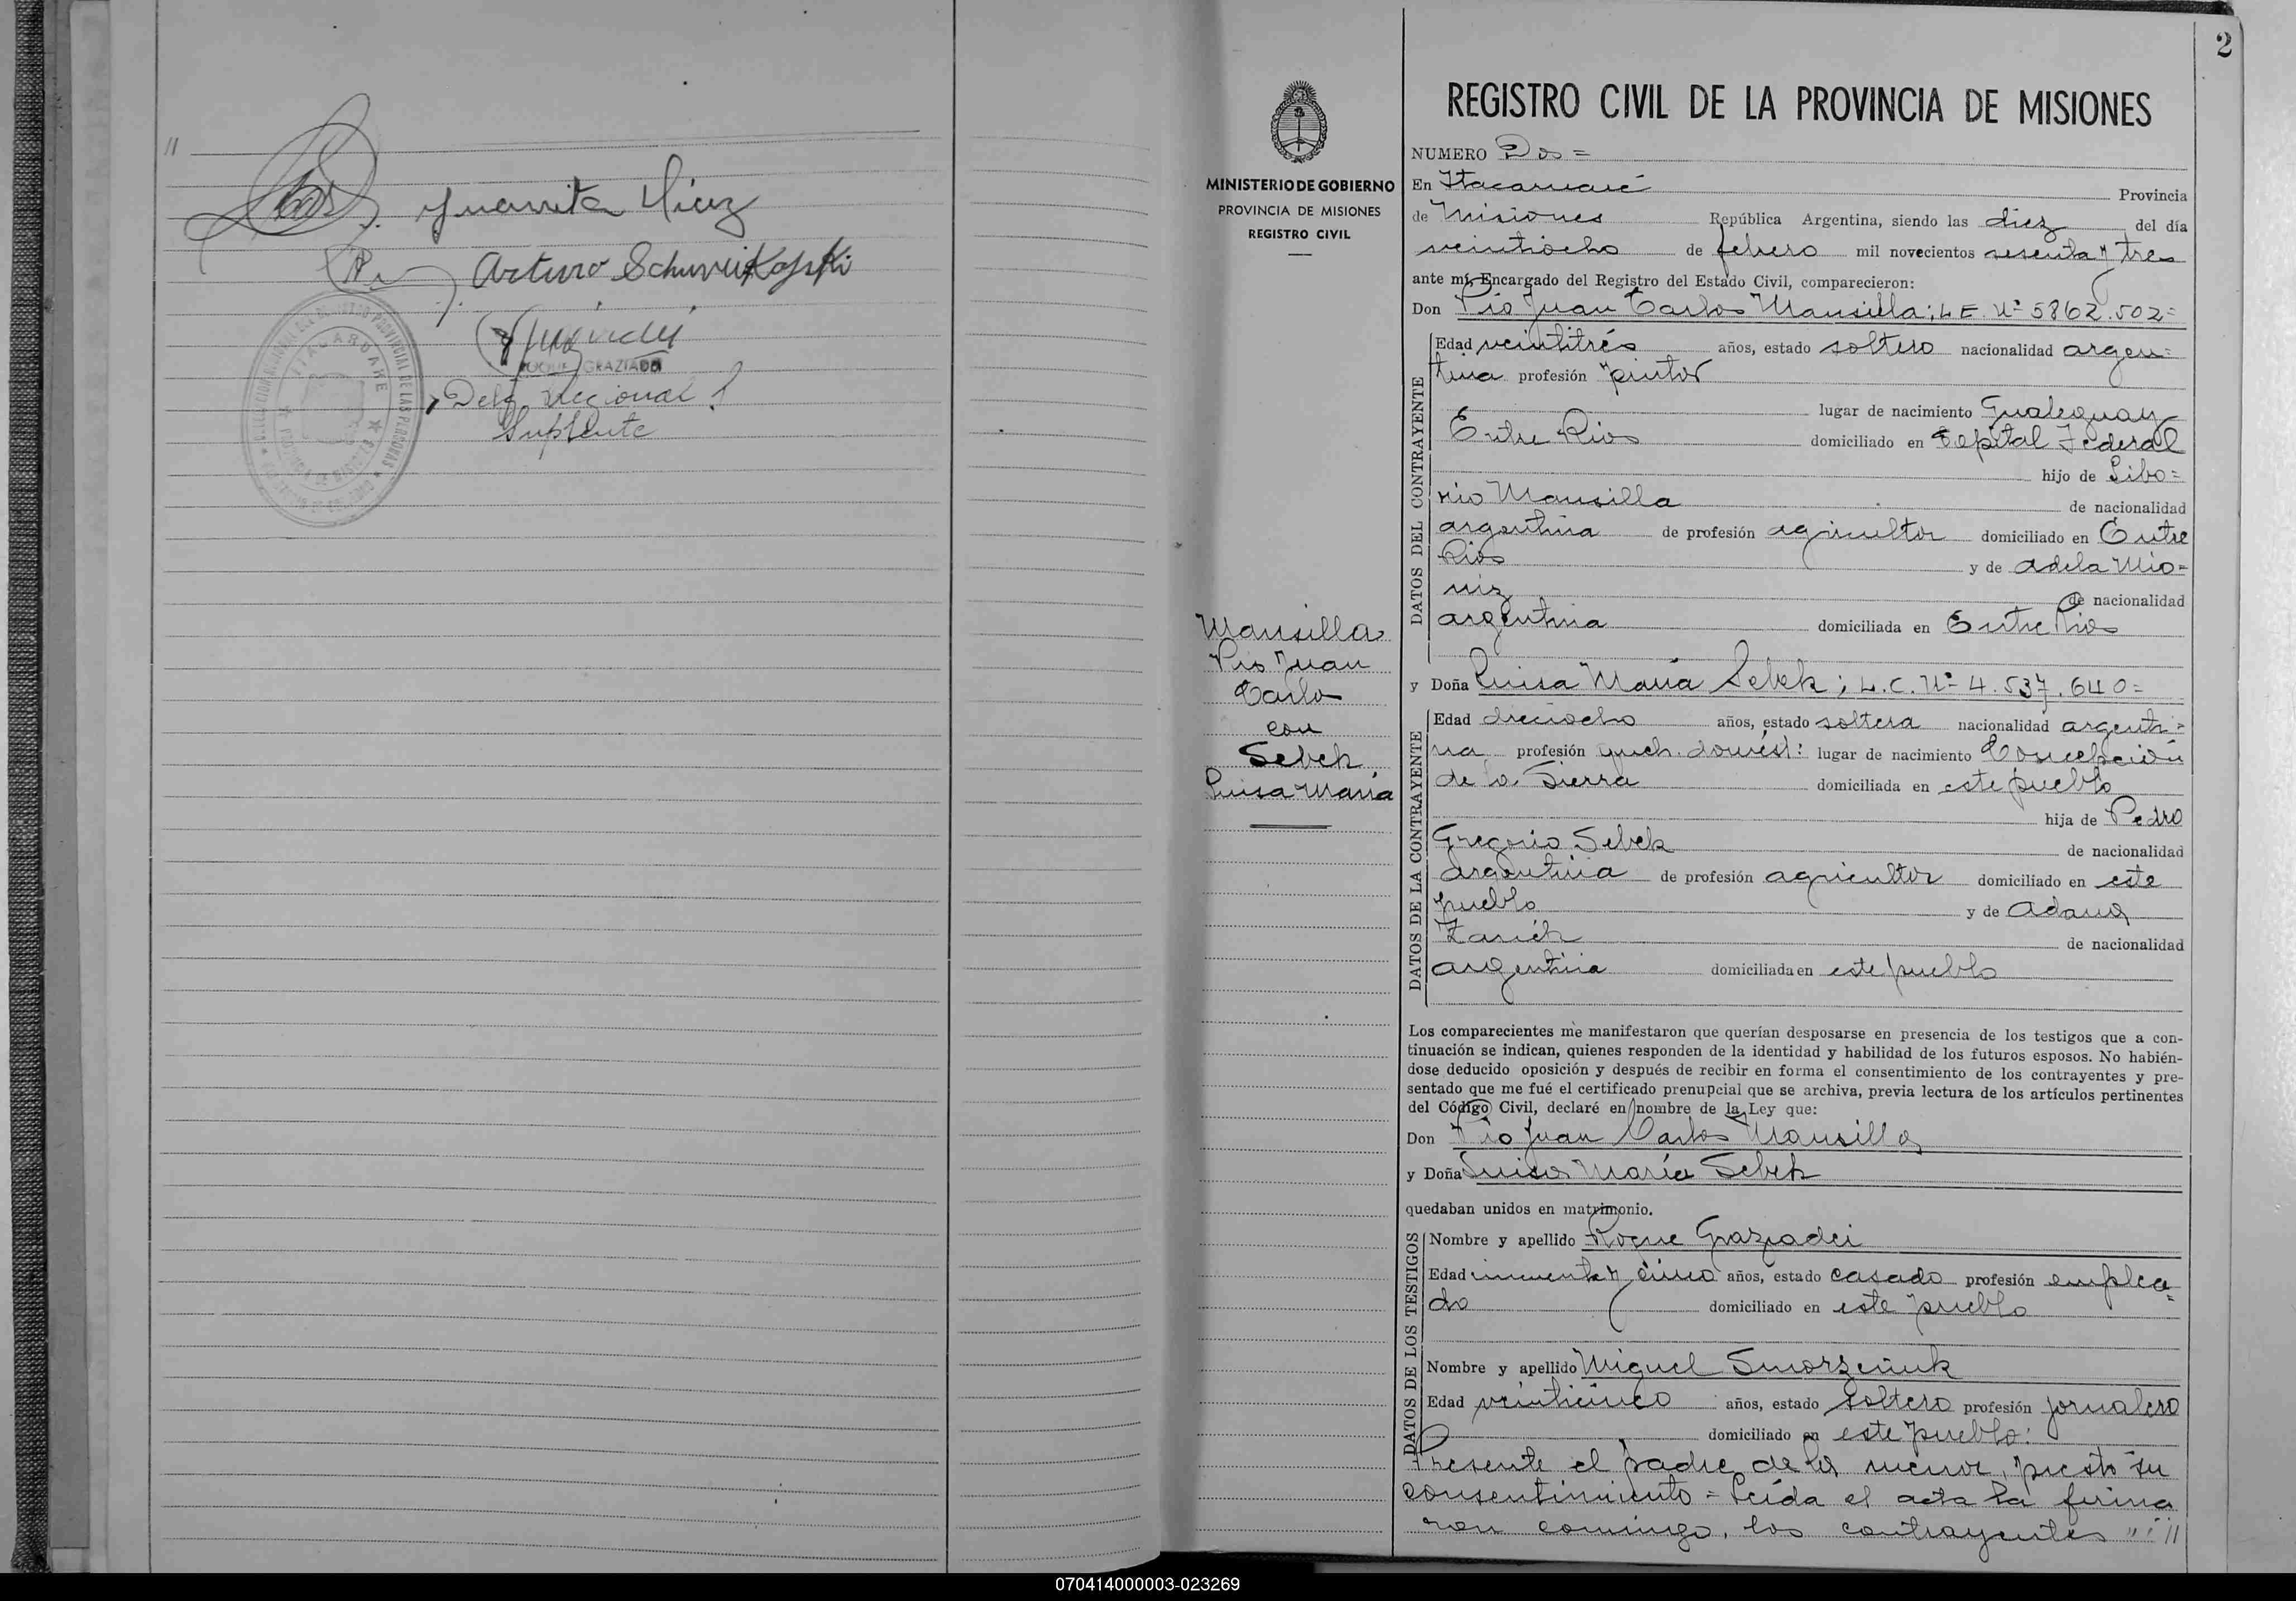 "
Juanita Diez
Arturo Schuveikofski
ROQUE GRAZIADEI
Deleg. Regional
Suplente
ITACARUARE
2
MINISTERIO DE GOBIERNO
PROVINCIA DE MISIONES
REGISTRO CIVIL
Mansilla
Pío Juan
Carlo
con
Sebek
Luisa María
REGISTRO CIVIL DE LA PROVINCIA DE MISIONES
NUMERO Dos =
En Itacaruaré Provincia
de Misiones República Argentina, siendo las diez del día
veintiocho de febrero mil novecientos sesenta y tres
ante mí, Encargado del Registro del Estado Civil, comparecieron:
Don Pío Juan Carlos Mansilla; L.E. Nº 5862.502=
DATOS DEL CONTRAYENTE
Edad veintitrés años, estado soltero nacionalidad argen=
tina profesión pintor
lugar de nacimiento Gualeguay
Entre Rios domiciliado en Capital Federal
hijo de Libo=
rio Mansilla de nacionalidad
argentina de profesión agricultor domiciliado en Entre
Rios y de Adela Mio=
niz de nacionalidad
argentina domiciliada en Entre Rios
y Doña Luisa María Sebek; L.C. Nº 4.537.640=
DATOS DE LA CONTRAYENTE
Edad dieciocho años, estado soltera nacionalidad argenti=
na profesión queh. domést: lugar de nacimiento Concepción
de la Sierra domiciliada en este pueblo
hija de Pedro
Gregorio Sebek de nacionalidad
argentina de profesión agricultor domiciliado en este
pueblo y de Adana
Zarich de nacionalidad
argentina domiciliada en este pueblo
Los comparecientes me manifestaron que querían desposarse en presencia de los testigos que a con-
tinuación se indican, quienes responden de la identidad y habilidad de los futuros esposos. No habién-
dose deducido oposición y después de recibir en forma el consentimiento de los contrayentes y pre-
sentado que me fué el certificado prenupcial que se archiva, previa lectura de los artículos pertinentes
del Código Civil, declaré en nombre de la Ley que:
Don Pío Juan Carlos Mansilla
y Doña Luisa María Sebek
quedaban unidos en matrimonio.
DATOS DE LOS TESTIGOS
Nombre y apellido Roque Graziadei
Edad cincuenta y cinco años, estado casado profesión emplea=
do domiciliado en este pueblo
Nombre y apellido Miguel Smorzeñuk
Edad veinticinco años, estado soltero profesión jornalero
domiciliado en este pueblo:
Presente el padre de la menor, prestó su
consentimiento = Leída el acta la firma
ron conmigo, los contrayentes " : //
070414000003-023269